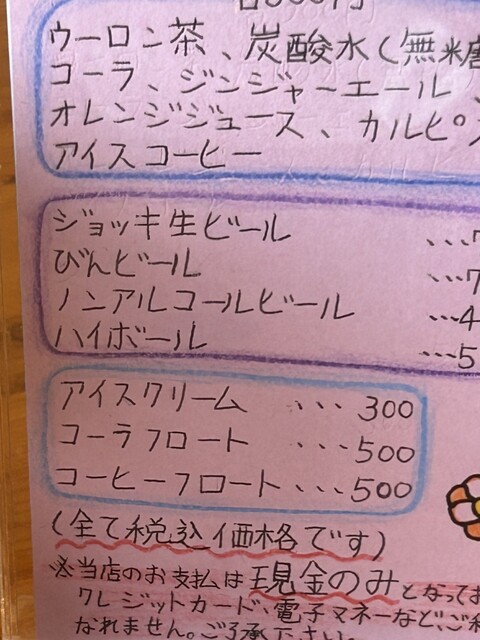 ウーロン茶、炭酸水(無糖
コーラ、ジンジャーエール、
オレンジジュース、カルピ
アイスコーヒー
ジョッキ生ビール ...7
びんビール ...7
ノンアルコールビール ...4
ハイボール ...5
アイスクリーム ... 300
コーラフロート ... 500
コーヒーフロート ... 500
(全て税込価格です)
※当店のお支払は現金のみとなってお
クレジットカード、電子マネーなど、ご利
なれません。ご了承ください。